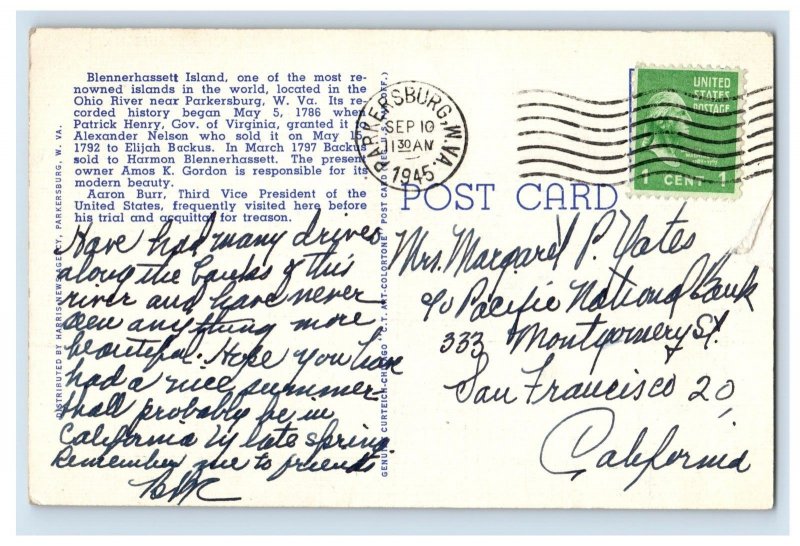 Blennerhassett Island, one of the most re-
nowned islands in the world, located in the
Ohio River near Parkersburg, W. Va. Its re-
corded history began May 5, 1786 when
Patrick Henry, Gov. of Virginia, granted it
Alexander Nelson who sold it on May
1792 to Elijah Backus. In March 1797 Backus
sold to Harmon Blennerhassett. The present
owner Amos K. Gordon is responsible for its
modern beauty.
Aaron Burr, Third Vice President of the
United States, frequently visited here before
his trial and acquittal for treason.
Have had many drives
along the banks of this
river and have never
seen anything more
beautiful. Hope you have
had a nice summer
shall probably be in
California by late spring
Remember me to friends
DISTRIBUTED BY HARRIS NEWS AGENCY, PARKERSBURG, W. VA.
GENUINE CURTEICH-CHICAGO "C.T. ART-COLORTONE" POST CARD
PARKERSBURG, W.VA.
SEP 10
1130 AM
1945
UNITED
STATES
POSTAGE
1 CENT 1
POST CARD
Mrs. Margaret P. Yates
c/o Pacific National Bank
333 Montgomery St.
San Francisco 20,
California